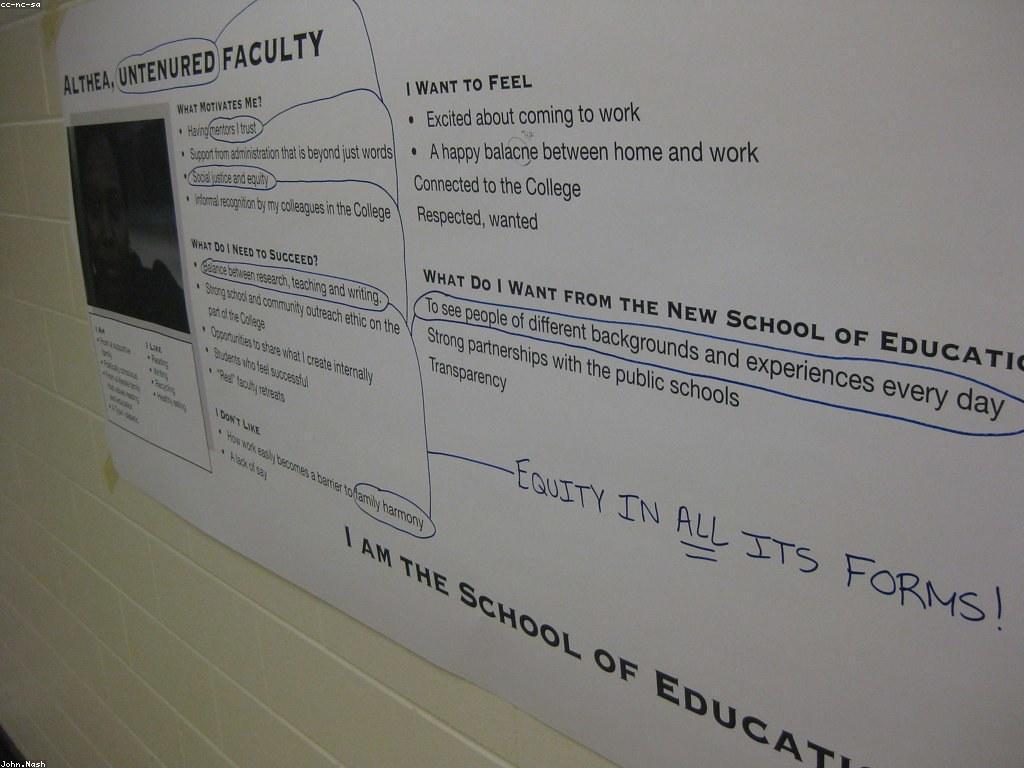 cc-nc-sa
ALTHEA, UNTENURED FACULTY
WHAT MOTIVATES ME?
• Having mentors I trust
• Support from administration that is beyond just words
• Social justice and equity
• Informal recognition by my colleagues in the College
WHAT DO I NEED TO SUCCEED?
• Balance between research, teaching and writing.
• Strong school and community outreach ethic on the
part of the College
• Opportunities to share what I create internally
• Students who feel successful
• "Real" faculty retreats
I DON'T LIKE
• How work easily becomes a barrier to family harmony
• A lack of say
I AM
• From a supportive
family
I LIKE
• Reading
• Writing
• Recycling
• Healthy eating
I WANT TO FEEL
• Excited about coming to work
• A happy balacne between home and work
Connected to the College
Respected, wanted
WHAT DO I WANT FROM THE NEW SCHOOL OF EDUCATIO
To see people of different backgrounds and experiences every day
Strong partnerships with the public schools
Transparency
EQUITY IN ALL ITS FORMS!
I AM THE SCHOOL OF EDUCATI
John.Nash